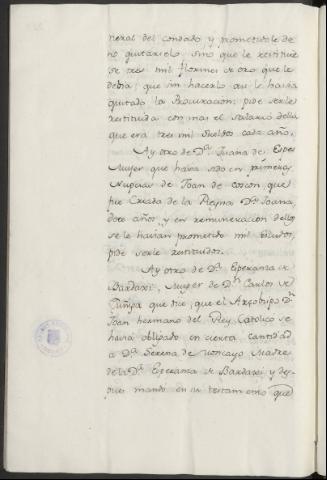 neral del condado, y prometidole de
no quitarselo sino que le restituie
se tres mil florines de oro que le
debia; que sin hacerlo assi le havia
quitado la Procuracion; pide serle
restituida con mas el salario della
que era tres mil sueldos cada año.
Ay otro de Dª Juana de Espes
Muger que havia sido en primeras
Nupcias de Joan de Coscon, que
fue Criada de la Reyna Dª Joana,
doce años, y en remuneracion dellos
se le havian prometido mil escudos,
pide serle restituidos.
Ay otro de Dª Esperanza de
Bardaxi, Muger de Dⁿ Carlos de
que dice, que el Arzobispo Dⁿ
Joan hermano del Rey Catolico se
havia obligado en cierta cantidad
a Dª Serena de Moncayo Madre
de la Dª Esperanza de Bardaxi y des-
pues mando en su testamento que